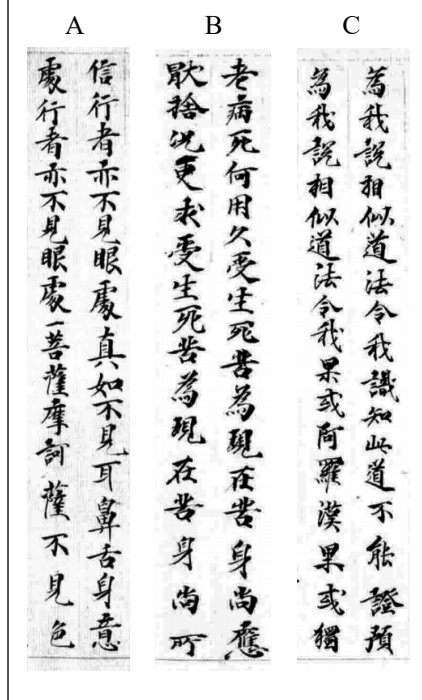 A
B
C
信行者亦不見眼處真如不見耳鼻舌身意
處行者亦不見眼處一菩薩摩訶薩不見色
老病死何用久受生死苦為現在苦身尚應
捨況更求受生死苦為現在苦身尚所
為我說相似道法令我識知此道不能證預
為我說相似道法令我果或阿羅漢果或獨